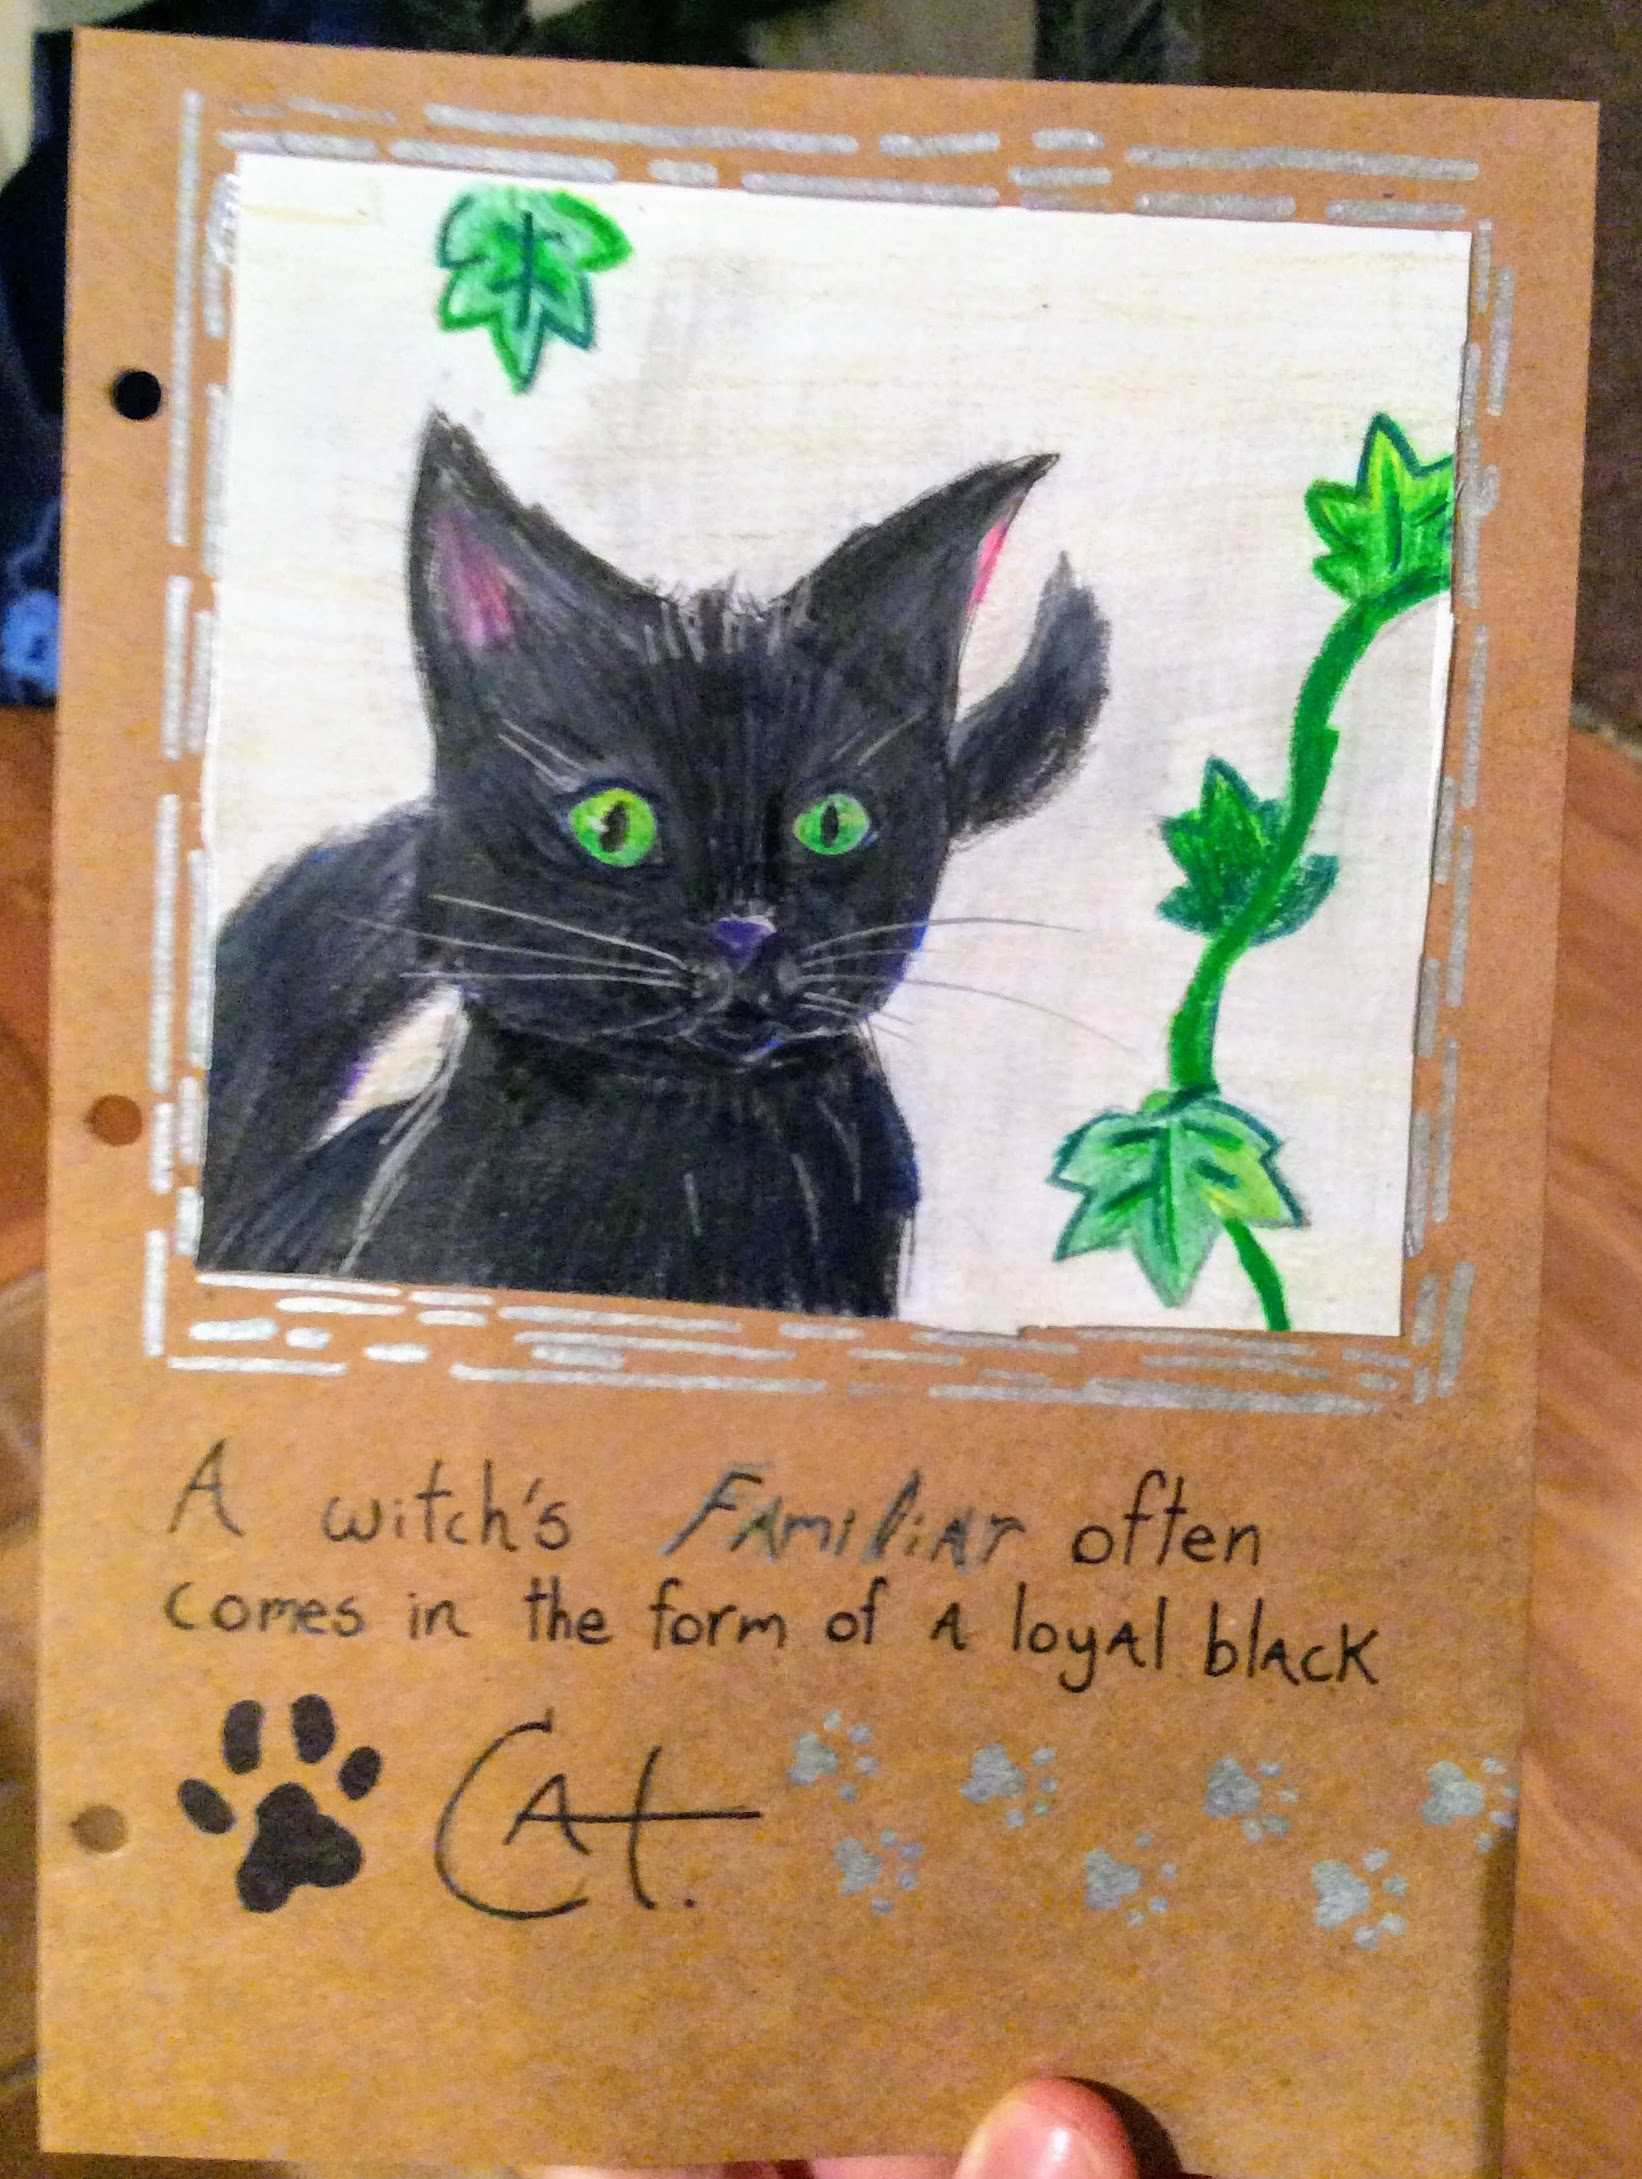 A witch's FAmiliAr often
comes in the form of A loyAl blAcK
CAt.